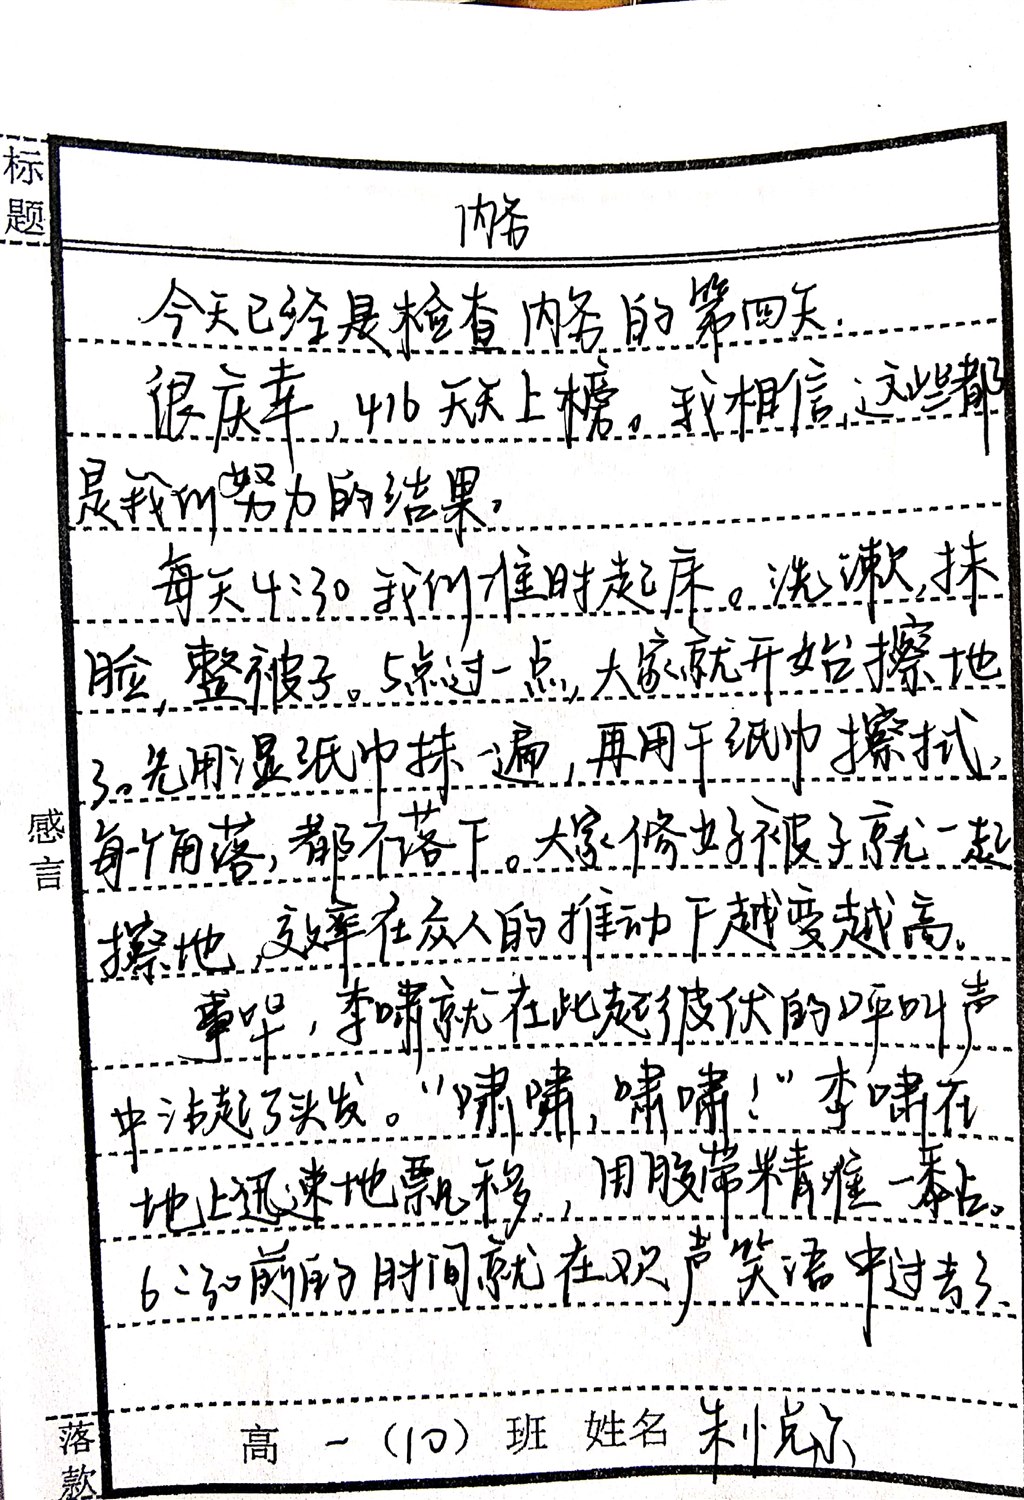 标题
内务
今天已经是检查内务的第四天.
很庆幸,416天天上榜。我相信,这些都
是我们努力的结果。
每天4:30我们准时起床。洗漱,抹
脸,整被子。5点过一点,大家就开始擦地
了。先用湿纸巾抹一遍,再用干纸巾擦拭,
每个角落,都不落下。大家修好被子就一起
擦地,效率在众人的推动下越变越高。
事毕,李啸就在此起彼伏的呼叫声
中沾起了头发。“啸啸,啸啸!”李啸在
地上迅速地飘移,用胶带精准一粘。
6:30前的时间就在欢声笑语中过去了.
感言
落款
高一(10)班 姓名 朱悦尔